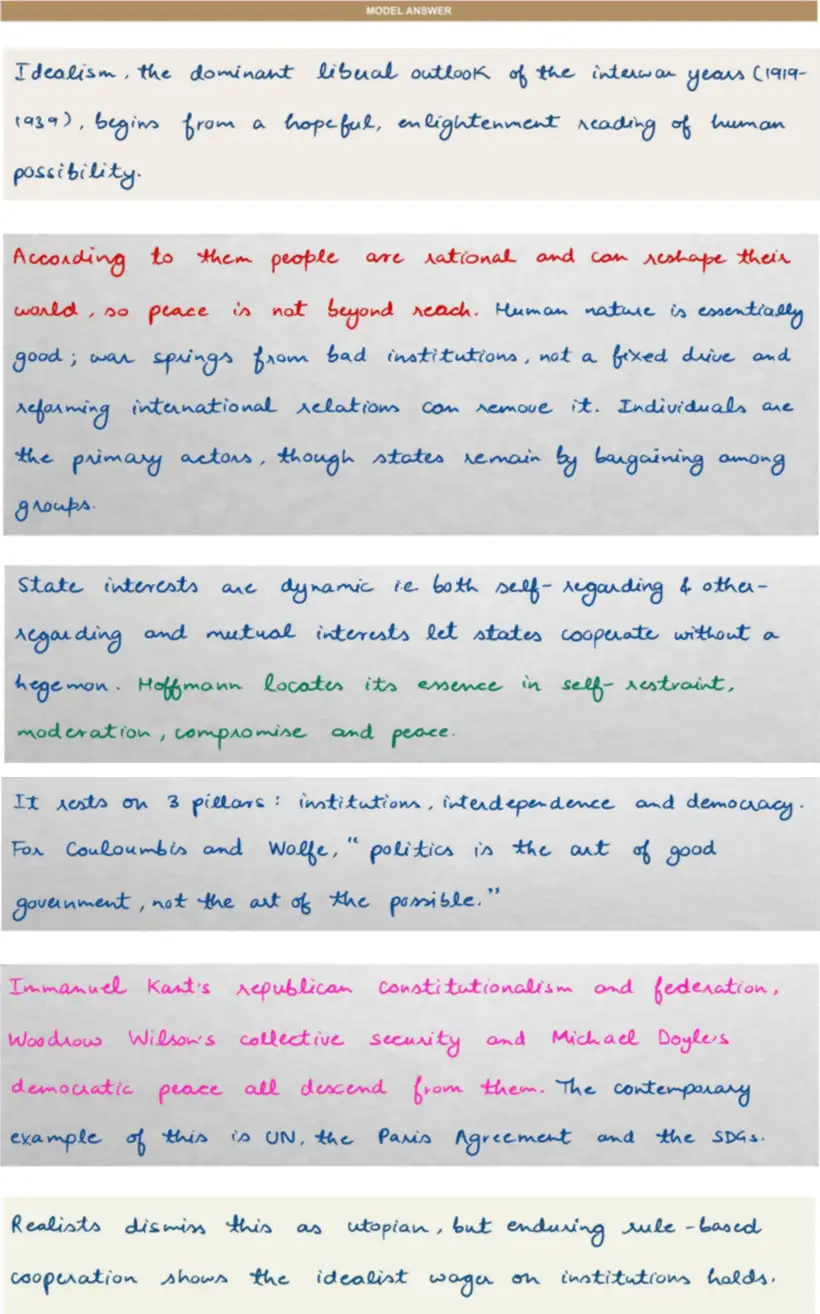 MODEL ANSWER
Idealism, the dominant liberal outlook of the interwar years (1919-
1939), begins from a hopeful, enlightenment reading of human
possibility.
According to them people are rational and can reshape their
world, so peace is not beyond reach. Human nature is essentially
good; war springs from bad institutions, not a fixed drive and
reforming international relations can remove it. Individuals are
the primary actors, though states remain by bargaining among
groups.
State interests are dynamic ie both self-regarding & other-
regarding and mutual interests let states cooperate without a
hegemon. Hoffmann locates its essence in self-restraint,
moderation, compromise and peace.
It rests on 3 pillars: institutions, interdependence and democracy.
For Couloumbis and Wolfe, "politics is the art of good
government, not the art of the possible."
Immanuel Kant's republican constitutionalism and federation,
Woodrow Wilson's collective security and Michael Doyle's
democratic peace all descend from them. The contemporary
example of this is UN, the Paris Agreement and the SDGs.
Realists dismiss this as utopian, but enduring rule-based
cooperation shows the idealist wager on institutions holds.